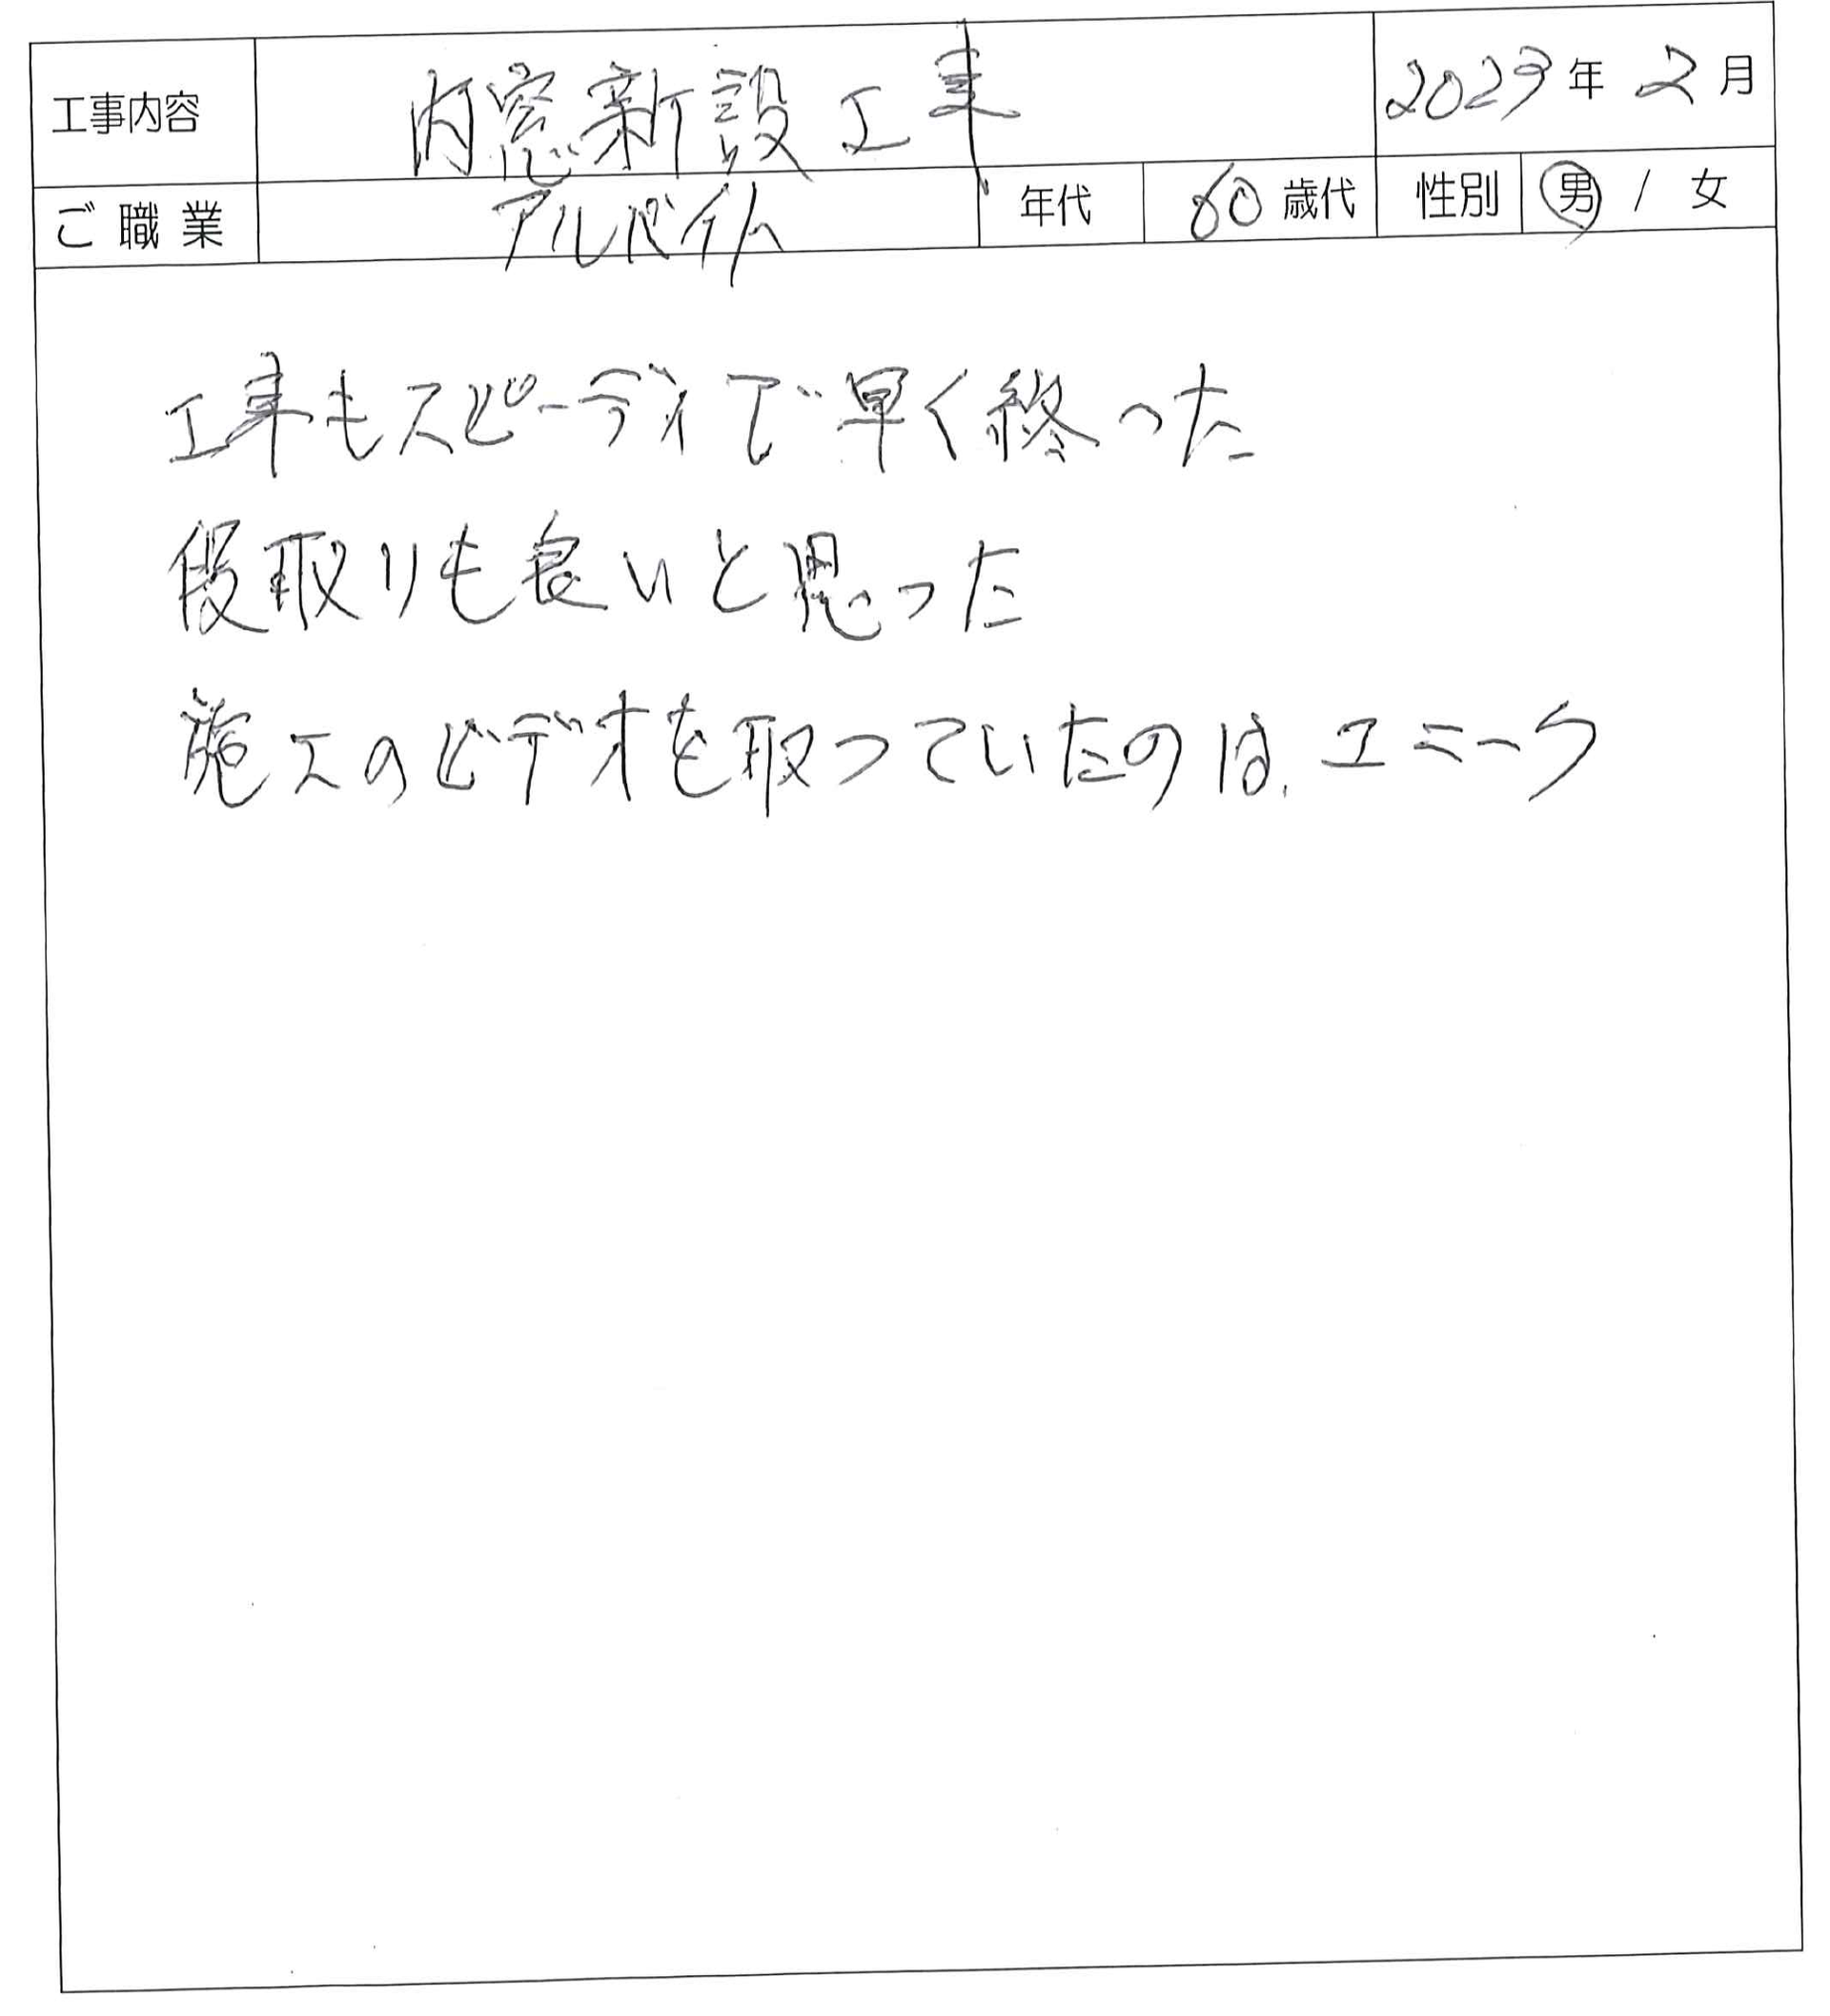 工事内容 内窓新設工事 2023年 2月
ご職業 アルバイト 年代 60歳代 性別 男 / 女
工事もスピーディで早く終った
段取りも良いと思った
施工のビデオを取っていたのは、ユニーク